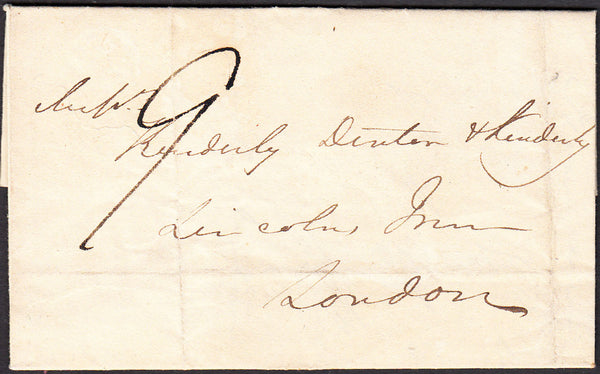 Messrs
9
Kinderly Denton & Kinderly
Lincolns Inn
London